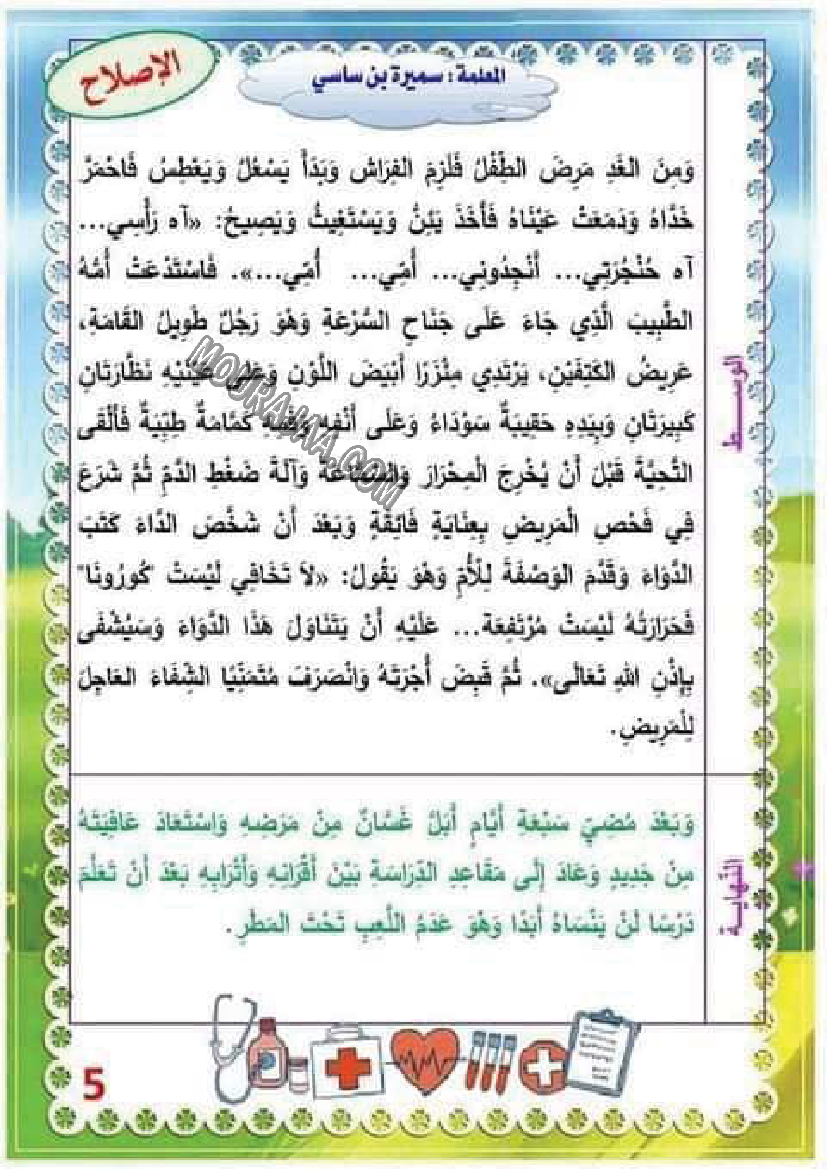 الإصلاح
المعلمة : سميرة بن ساسي
وَمِنَ الغَدِ مَرِضَ الطِّفْلُ فَلَزِمَ الفِرَاشَ وَبَدَأَ يَسْعُلُ وَيَعْطِسُ فَاحْمَرَّ
خَدَّاهُ وَدَمَعَتْ عَيْنَاهُ فَأَخَذَ يَئِنُّ وَيَسْتَغِيثُ وَيَصِيحُ: «آه رَأْسِي...
آه حُنْجُرَتِي... أَنْجِدُونِي... أُمِّي... أُمِّي...». فَاسْتَدْعَتْ أُمُّهُ
الطَّبِيبَ الَّذِي جَاءَ عَلَى جَنَاحِ السُّرْعَةِ وَهُوَ رَجُلٌ طَوِيلُ القَامَةِ،
عَرِيضُ الكَتِفَيْنِ، يَرْتَدِي مِئْزَرًا أَبْيَضَ اللَّوْنِ وَعَلَى عَيْنَيْهِ نَظَّارَتَانِ
كَبِيرَتَانِ وَبِيَدِهِ حَقِيبَةٌ سَوْدَاءُ وَعَلَى أَنْفِهِ وَفَمِهِ كَمَّامَةٌ طِبِّيَةٌ فَأَلْقَى
التَّحِيَّةَ قَبْلَ أَنْ يُخْرِجَ الْمِحْرَارَ وَالسَّمَّاعَةَ وَآلَةَ ضَغْطِ الدَّمِّ ثُمَّ شَرَعَ
فِي فَحْصِ الْمَرِيضِ بِعِنَايَةٍ فَائِقَةٍ وَبَعْدَ أَنْ شَخَّصَ الدَّاءَ كَتَبَ
الدَّوَاءَ وَقَدَّمَ الوَصْفَةَ لِلْأُمِّ وَهُوَ يَقُولُ: «لاَ تَخَافِي لَيْسَتْ "كُورُونَا"
فَحَرَارَتُهُ لَيْسَتْ مُرْتَفِعَة... عَلَيْهِ أَنْ يَتَنَاوَلَ هَذَا الدَّوَاءَ وَسَيُشْفَى
بِإِذْنِ اللهِ تَعَالَى». ثُمَّ قَبِضَ أُجْرَتَهُ وَانْصَرَفَ مُتَمَنِّيًا الشِّفَاءَ العَاجِلَ
لِلْمَرِيضِ.
الوسط
وَبَعْدَ مُضِيِّ سَبْعَةِ أَيَّامٍ أَبَلَّ غَسَّانُ مِنْ مَرَضِهِ وَاسْتَعَادَ عَافِيَتَهُ
مِنْ جَدِيدٍ وَعَادَ إِلَى مَقَاعِدِ الدِّرَاسَةِ بَيْنَ أَقْرَانِهِ وَأَتْرَابِهِ بَعْدَ أَنْ تَعَلَّمَ
دَرْسًا لَنْ يَنْسَاهُ أَبَدًا وَهُوَ عَدَمُ اللَّعِبِ تَحْتَ المَطَرِ.
النهاية
MOURAJAA.COM
5